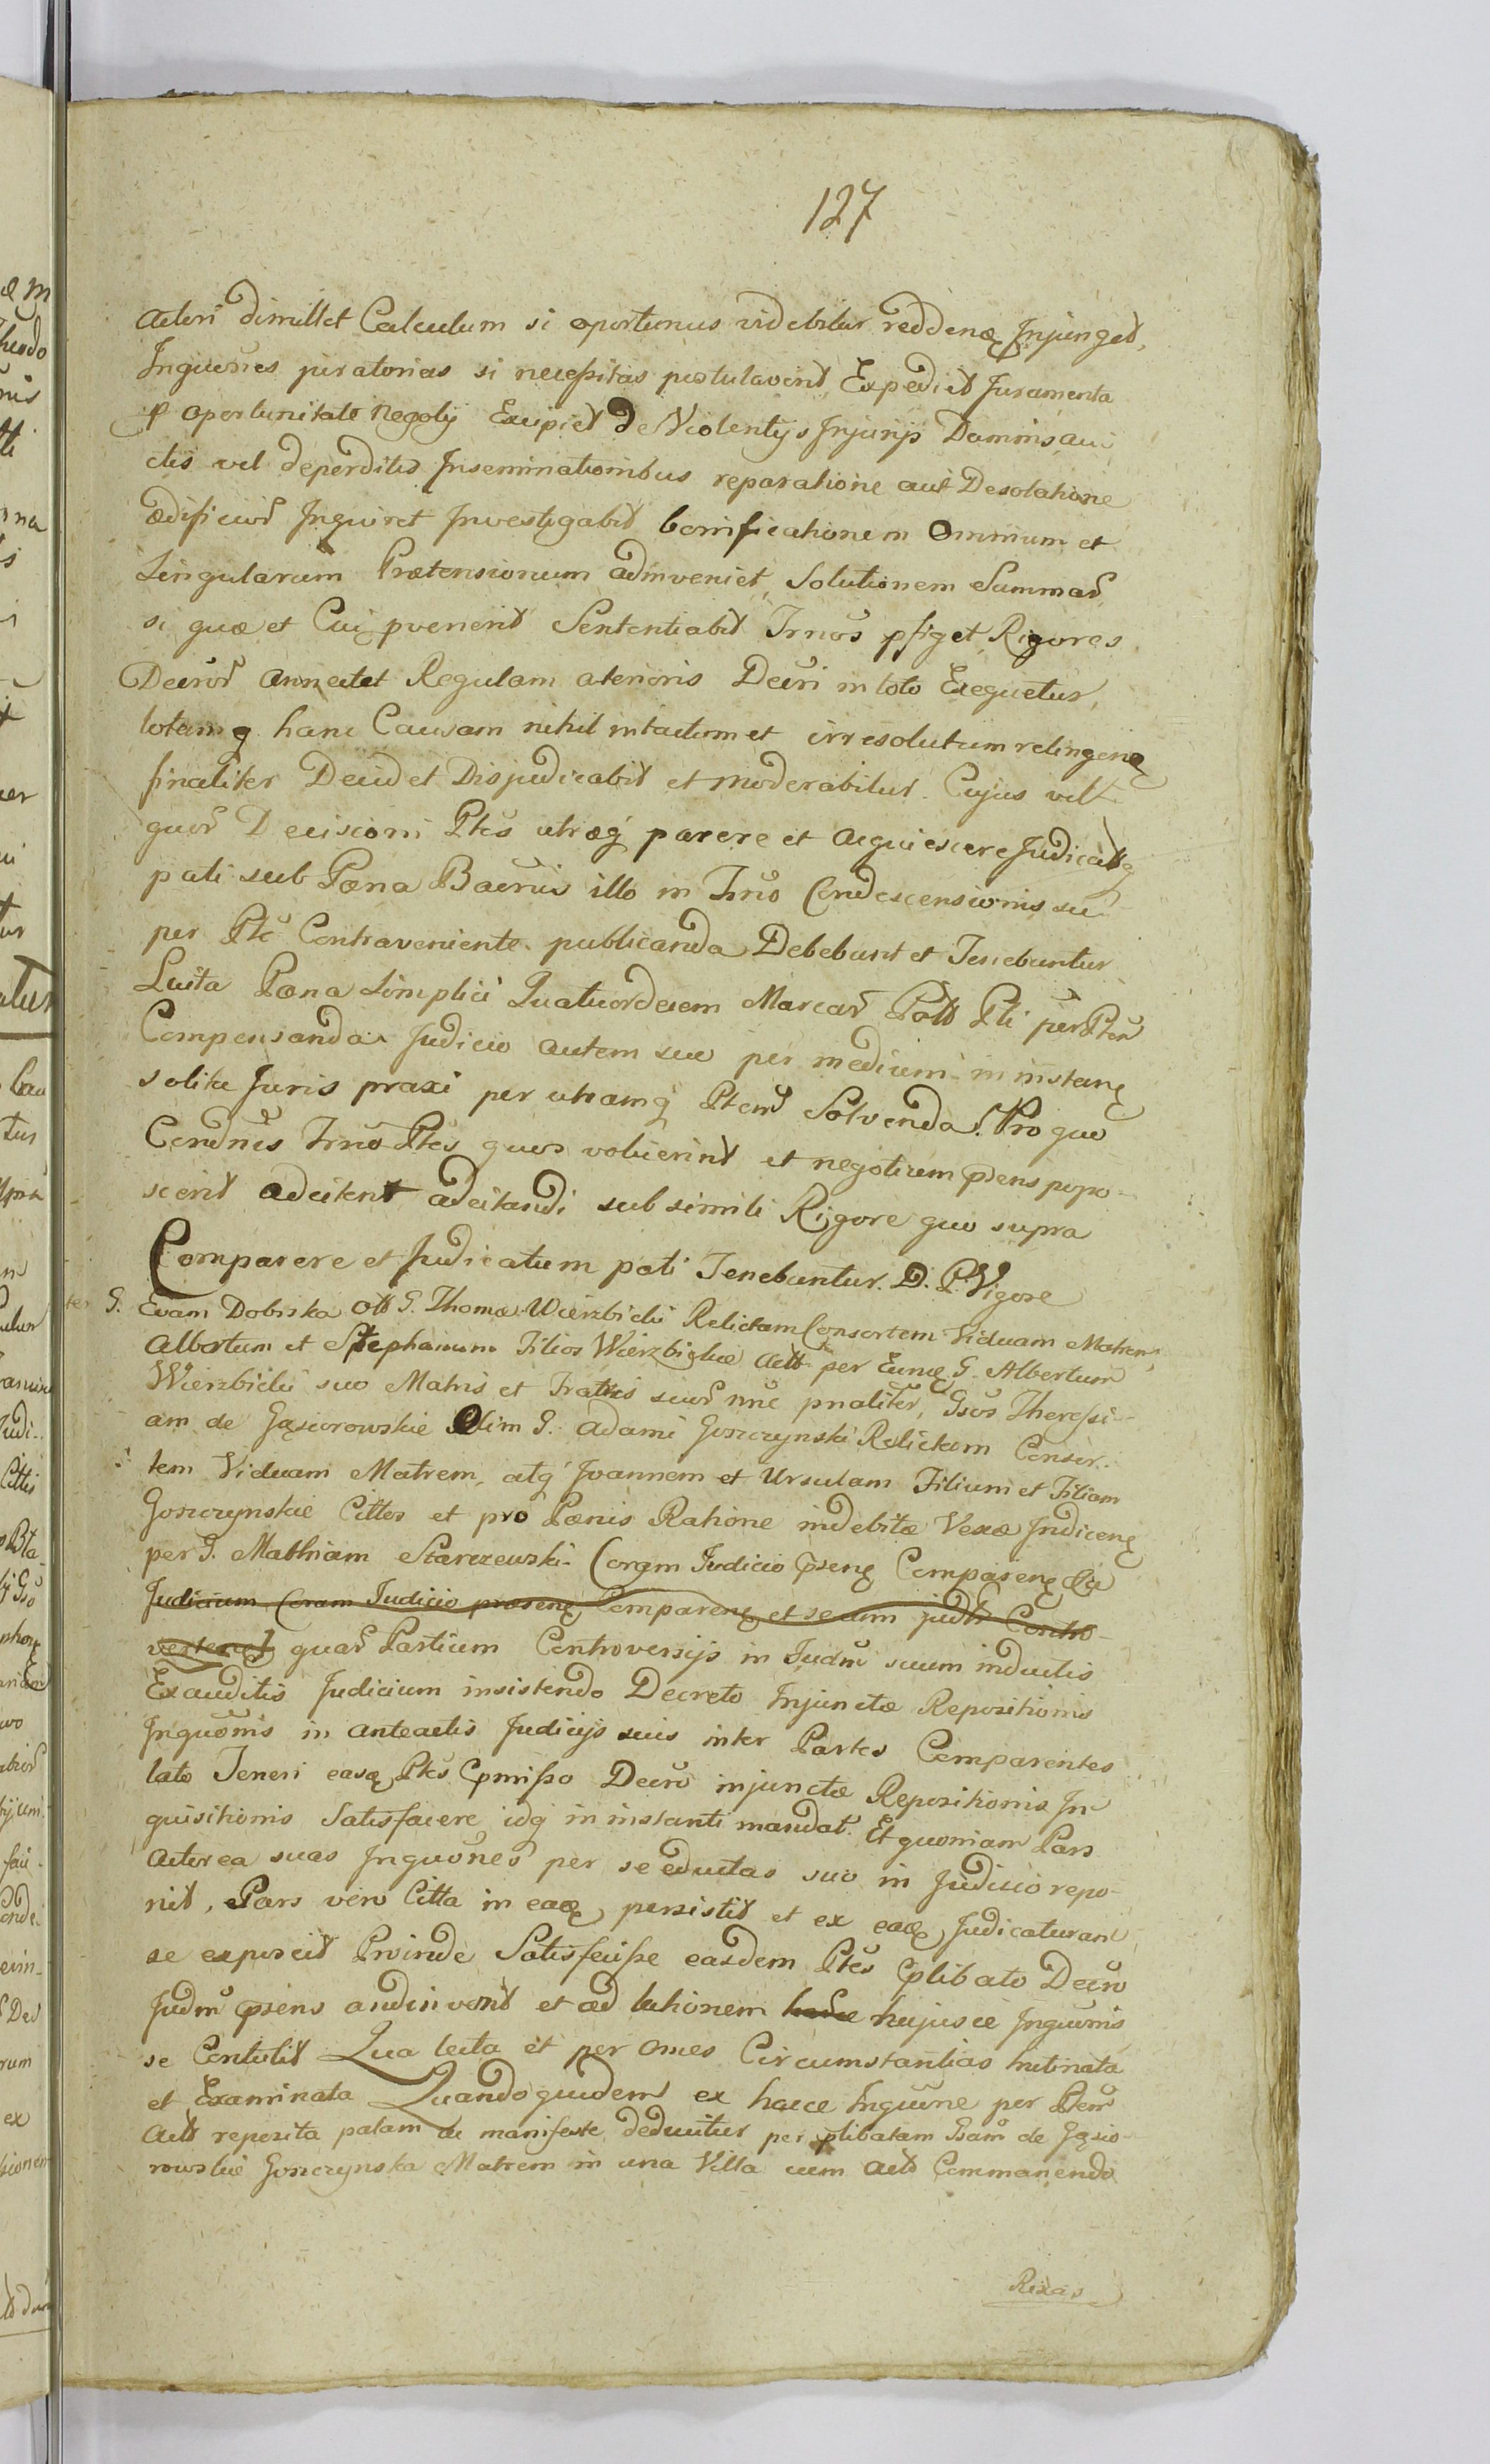 127
Actori dimittet Calculum si oportunus videbitur reddenę Injunget,
Inquōnes juratorias si necessitas postulaverit, Expediet Juramenta
p oportunitate Negoty Excipiet De Violentys Injurys Damnis, aui
ctis vel deperditis Inseminationibus reparatione aut Desolatione
ædificior Inquiret Investigabit bonificationem Omnium et
Singularum Prætensionum adinveniet, Solutionem Summar,
si quæ et Cui pvenerit Sententiabit Trnos pfiget, Rigores
Decror annectet Regulam aterioris Decri in toto Exequetur,
totamq hanc Causam nihil intactum et irresolutum relinqenę
finaliter Decidet Disjudicabit et moderabitur. Cujus vel
quor Decisioni Ptes utræq parere et acquiescere Judicatq
pati sub Pæna Bacnis illo in Trno Condescensionis su
per Pte Contraveniente publicanda Debebunt et Tenebuntur
Luita Pæna simplici Quatuordecem Marcar Poll Pti per Ptem
Compensanda Judicio autem suo per medium in instanę
solita Juris praxi per utramq Ptem Solvenda. Pro quo
Condnis Trno Ptes quos voluerint et negotium psens popo-
scerit adcitent adcitandi sub simili Rigore quo supra
Comparere et Judicatum pati Tenebuntur. D. P. Vigore
ter G. Evam Dobrska olt G. Thomæ Wierzbicki Relictam Consortem Viduam Matrem,
Albertum et Stephanum Filios Wierzbickie Actt per Eunę G. Albertum
Wierzbicki suo Matris et Fratris suor nne pnaliter, Gsos Theressi-
am de Gąsiorowskie Olim G. Adami Goszczynski Relictam Consor-
tem Viduam Matrem, atq Joannem et Ursulam Filium et Filiam
Goszczynskie Cittos et pro Pænis Ratione indebitæ Vexæ Indicenę
per G. Mathiam Starczewski Coram Judicio psenę Comparenę
Judicium Coram Judicio præsenę Comparenę et secum judr Contro-
vertenę quar Partium Controversijs in Judm suum inductis
Exauditis Judicium insistendo Decreto Injunctæ Repositionis
Inquōnis in anteactis Judicijs suis inter Partes Comparentes
lato Teneri easq Ptes Cpmisso Decro injunctæ Repositionis In
quisitionis Satisfacere idq in instanti mandat. Et quoniam Pars
Actorea suas Inquōnes per se eductas suo in Judicio repo-
nit, Pars vero Citta in eaq persistit et ex eaq Judicaturam
se exposcit Proinde Satisfecisse easdem Ptes plibato Decro
Judm psens audinvenit et ad lationem hujusce Inquōnis
se Contulit Qua lecta et per Omes Circumstantias trutinata
et Examinata Quandoquidem ex hacce Inquōne per Ptem
Actt reposita palam ac manifeste deducitur per plibatam Gsam de Gąsio
rowskie Goszczynska Matrem in una Villa cum Actt Commanendo
Rixas